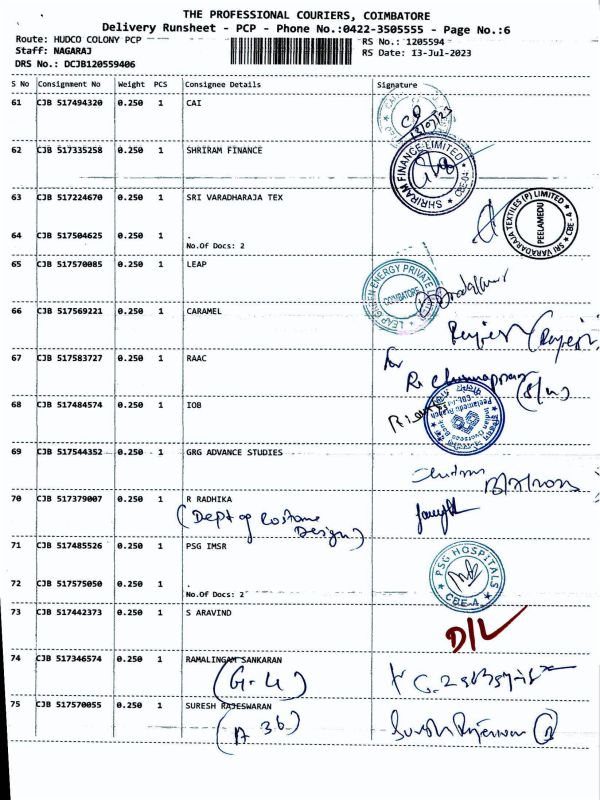 THE PROFESSIONAL COURIERS, COIMBATORE
Delivery Runsheet - PCP - Phone No.:0422-3505555 - Page No.:6
Route: HUDCO COLONY PCP RS No.: 1205594
Staff: NAGARAJ RS Date: 13-Jul-2023
DRS No.: DCJB120559406
S No Consignment No Weight PCS Consignee Details Signature
61 CJB 517494320 0.250 1 CAI
62 CJB 517335258 0.250 1 SHRIRAM FINANCE
SHRIRAM FINANCE LIMITED CBE-04
63 CJB 517224670 0.250 1 SRI VARADHARAJA TEX
SRI VARADARAJA TEXTILES (P) LIMITED CBE-4
PEELAMEDU
64 CJB 517504625 0.250 1 .
No.Of Docs: 2
65 CJB 517570085 0.250 1 LEAP
LEAP GREEN ENERGY PRIVATE
COIMBATORE
66 CJB 517569221 0.250 1 CARAMEL
67 CJB 517583727 0.250 1 RAAC
68 CJB 517484574 0.250 1 IOB
Indian Overseas Bank
Peelamedu Branch
69 CJB 517544352 0.250 1 GRG ADVANCE STUDIES
70 CJB 517379007 0.250 1 R RADHIKA
(Dept of Costume
Design)
71 CJB 517485526 0.250 1 PSG IMSR
PSG HOSPITALS
CBE-4
72 CJB 517575050 0.250 1 .
No.Of Docs: 2
73 CJB 517442373 0.250 1 S ARAVIND
D/L
74 CJB 517346574 0.250 1 RAMALINGAM SANKARAN
(G-4)
75 CJB 517570055 0.250 1 SURESH RAJESWARAN
(A 36)